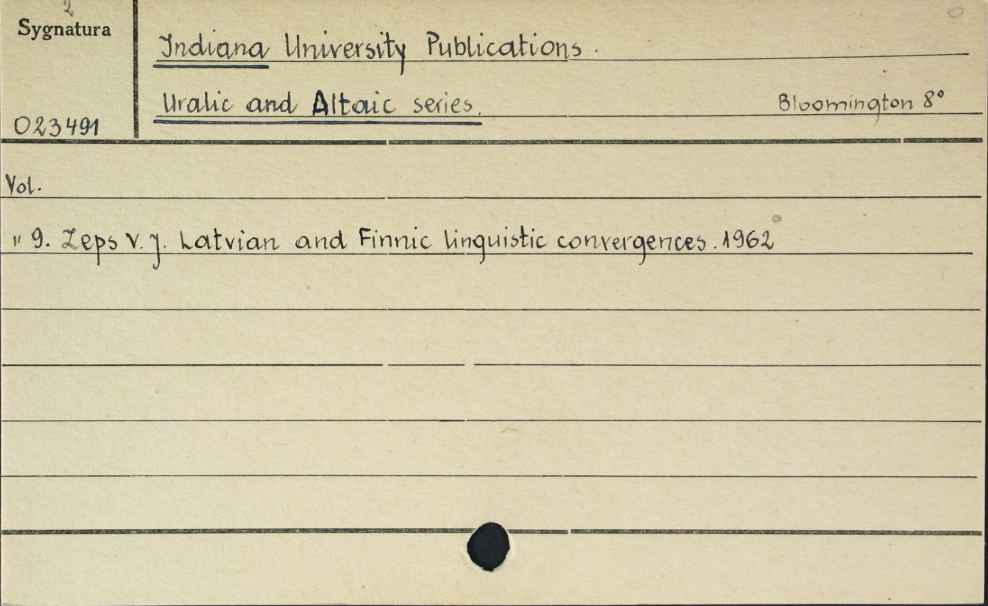 2
Sygnatura
Indiana University Publications.
Uralic and Altaic series.
Bloomington 8°
023491
Vol.
" 9. Zeps V. J. Latvian and Finnic linguistic convergences. 1962